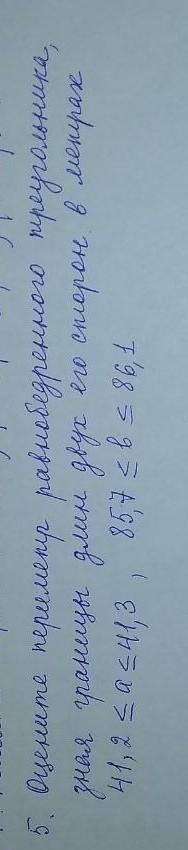 5. Оцените периметр равнобедренного треугольника,
зная границы длин двух его сторон в метрах
41,2 ≤ a ≤ 41,3 , 85,7 ≤ b ≤ 86,1